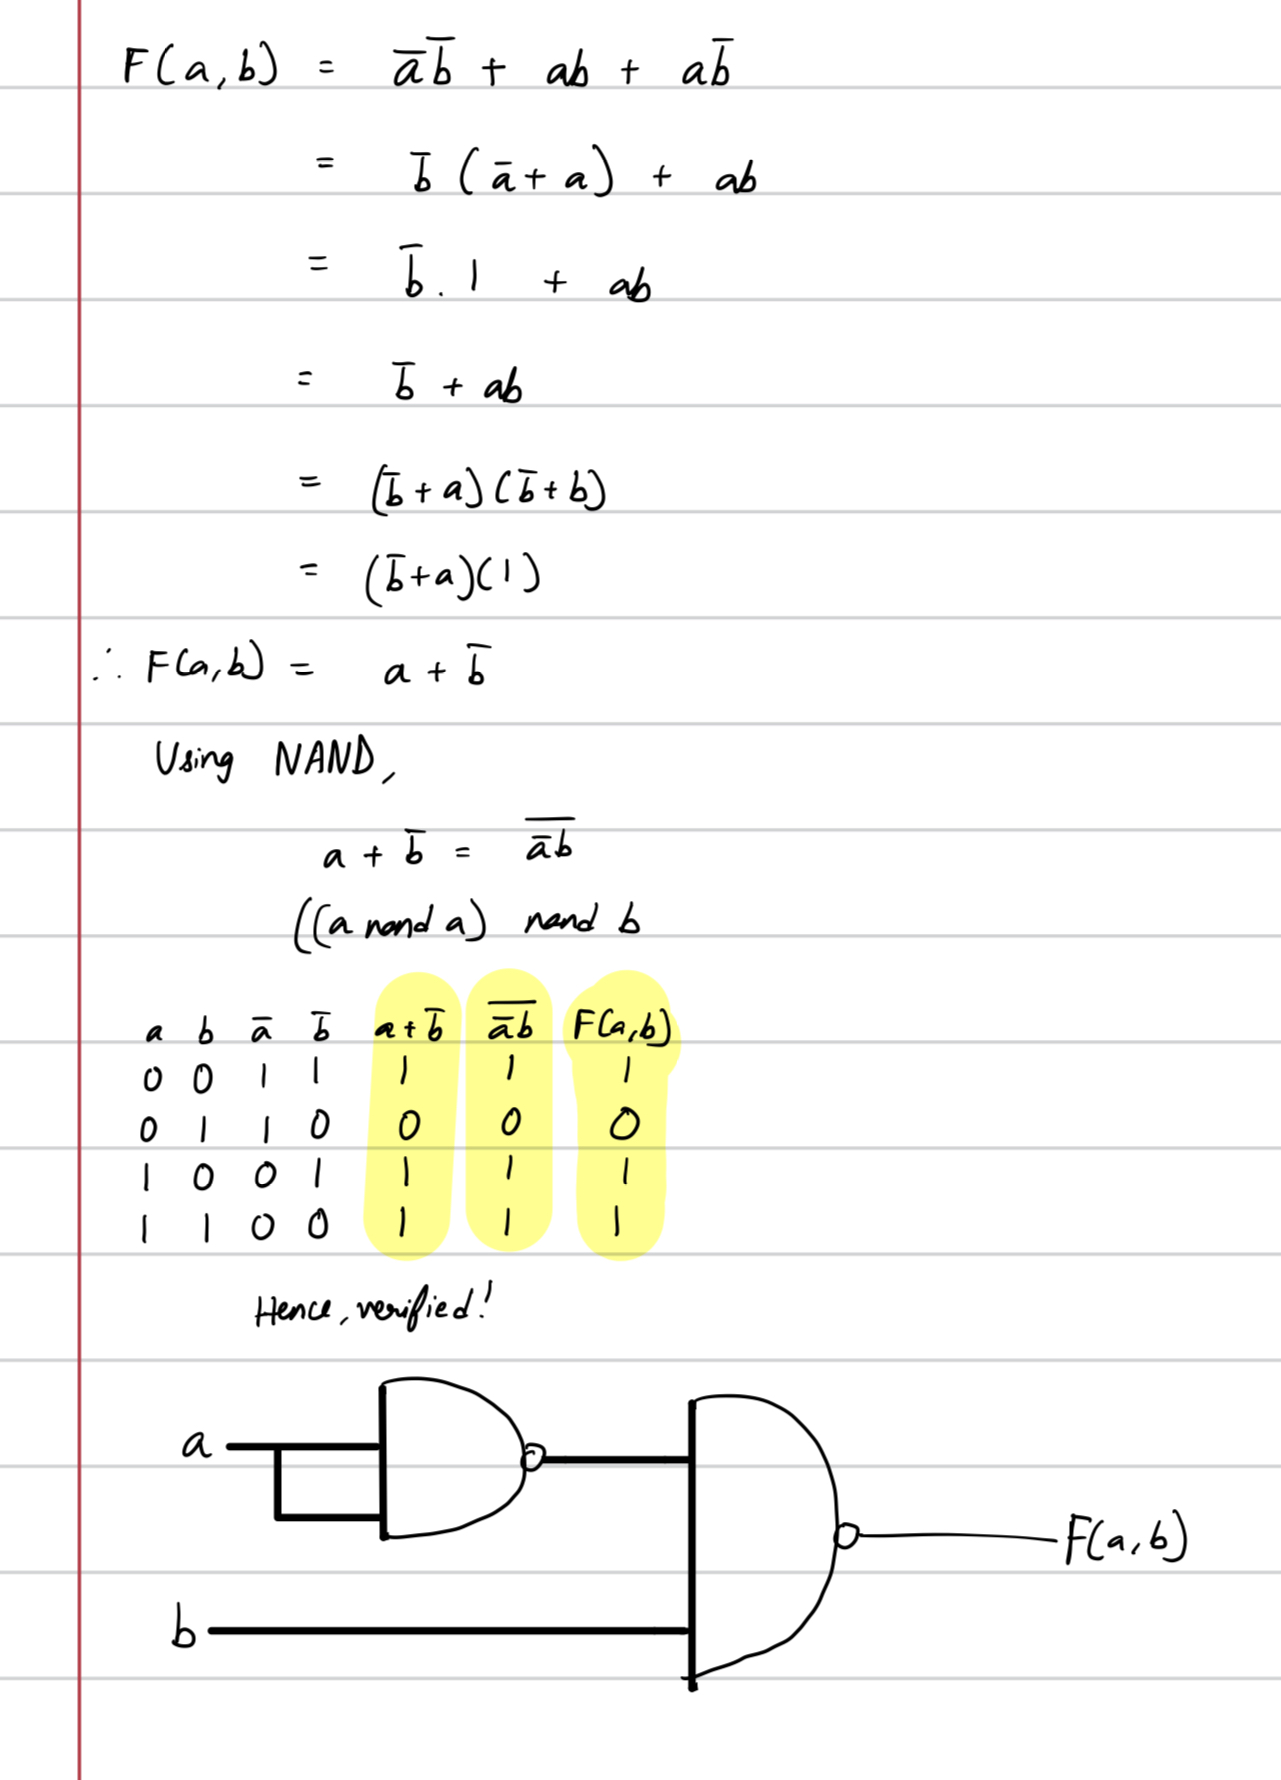 F(a,b) = a̅b̅ + ab + ab̅
= b̅ (a̅ + a) + ab
= b̅ . 1 + ab
= b̅ + ab
= (b̅ + a)(b̅ + b)
= (b̅+a)(1)
∴ F(a,b) = a + b̅
Using NAND,
a + b̅ = \overline{a̅b}
((a nand a) nand b
a b a̅ b̅ a+b̅ \overline{a̅b} F(a,b)
0 0 1 1 1 1 1
0 1 1 0 0 0 0
1 0 0 1 1 1 1
1 1 0 0 1 1 1
Hence, verified!
a
F(a,b)
b